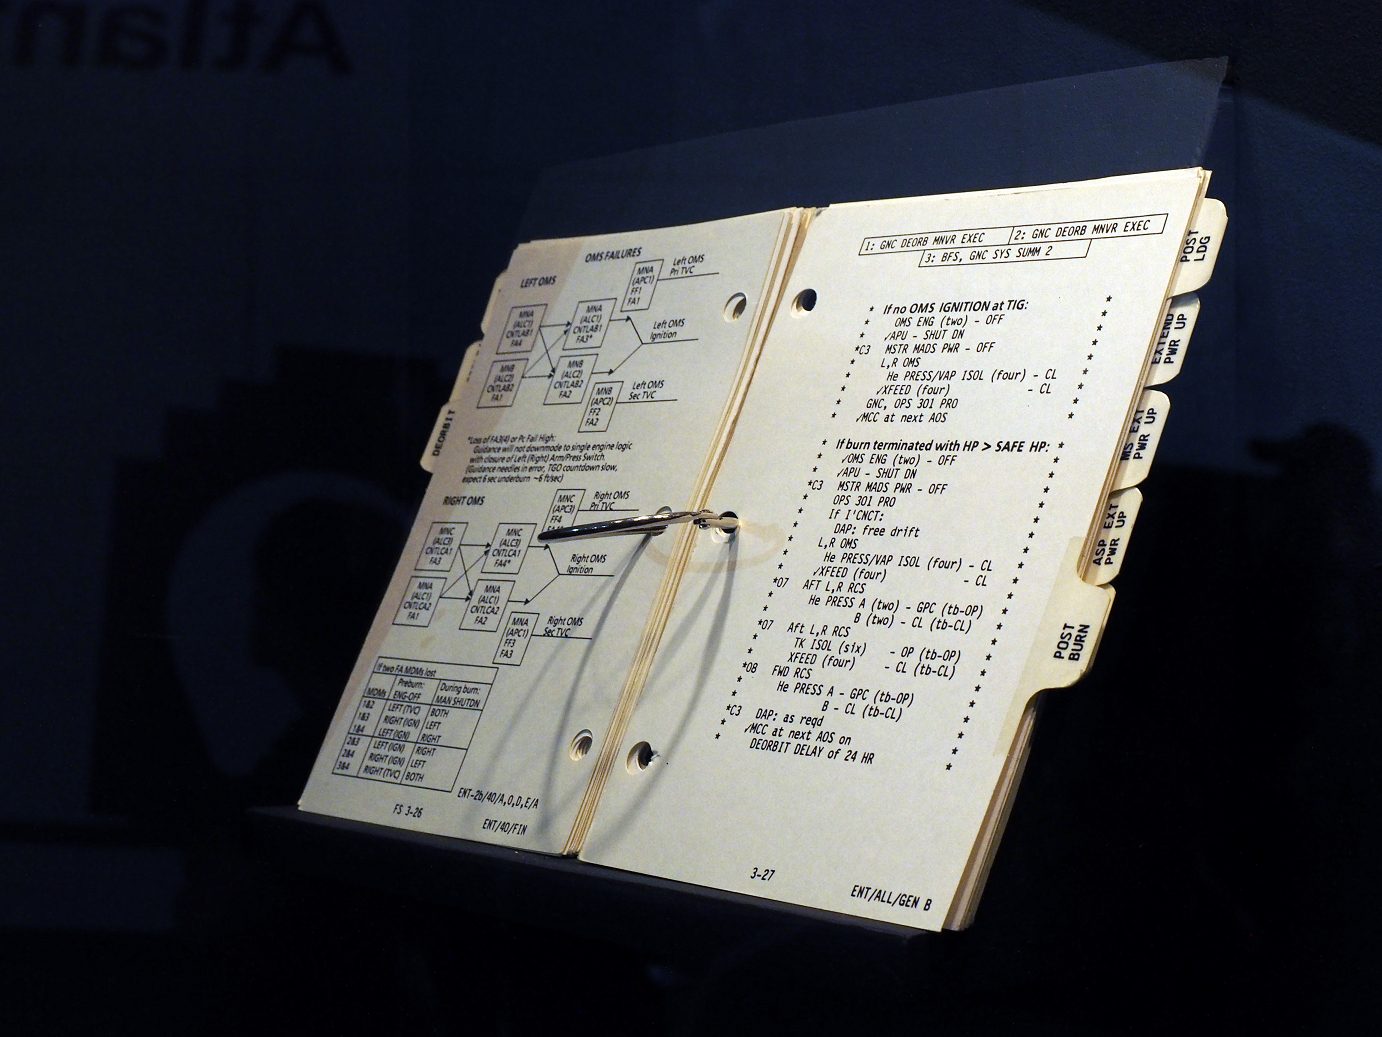 Atlan
OMS FAILURES
LEFT OMS
MNA
(ALC1)
CNTLAB1
FA4
MNB
(ALC2)
CNTLAB2
FA1
MNA
(ALC1)
CNTLAB1
FA3*
MNB
(ALC2)
CNTLAB2
FA2
MNA
(APC1)
FF1
FA1
Left OMS
Pri TVC
Left OMS
Ignition
MNB
(APC2)
FF2
FA2
Left OMS
Sec TVC
*Loss of FA3(4) or Pc Fail High:
Guidance will not downmode to single engine logic
with closure of Left (Right) Arm/Press Switch.
(Guidance needles in error, TGO countdown slow,
expect 6 sec underburn ~6 ft/sec)
RIGHT OMS
MNC
(ALC3)
CNTLCA1
FA3
MNA
(ALC1)
CNTLCA2
FA1
MNC
(ALC3)
CNTLCA1
FA4*
MNA
(ALC1)
CNTLCA2
FA2
MNC
(APC3)
FF4
Right OMS
Pri TVC
Right OMS
Ignition
MNA
(APC1)
FF3
FA3
Right OMS
Sec TVC
If two FA MDMs lost
MDMs Preburn: ENG-OFF During burn: MAN SHUTDN
1&2 LEFT (TVC) BOTH
1&3 RIGHT (IGN) LEFT
1&4 LEFT (IGN) RIGHT
2&3 LEFT (IGN) RIGHT
2&4 RIGHT (IGN) LEFT
3&4 RIGHT (TVC) BOTH
ENT-26/40/A,O,D,E/A
FS 3-26
ENT/40/FIN
DEORBIT
1: GNC DEORB MNVR EXEC 2: GNC DEORB MNVR EXEC
3: BFS, GNC SYS SUMM 2
* If no OMS IGNITION at TIG: *
* OMS ENG (two) - OFF *
* ✓APU - SHUT DN *
*C3 MSTR MADS PWR - OFF *
* L,R OMS *
* He PRESS/VAP ISOL (four) - CL *
* ✓XFEED (four) - CL *
* GNC, OPS 301 PRO *
* ✓MCC at next AOS *
* If burn terminated with HP > SAFE HP: *
* ✓OMS ENG (two) - OFF *
* ✓APU - SHUT DN *
*C3 MSTR MADS PWR - OFF *
* OPS 301 PRO *
* If I'CNCT: *
* DAP: free drift *
* L,R OMS *
* He PRESS/VAP ISOL (four) - CL *
* ✓XFEED (four) - CL *
*07 AFT L,R RCS *
* He PRESS A (two) - GPC (tb-OP) *
* B (two) - CL (tb-CL) *
*07 Aft L,R RCS *
* TK ISOL (six) - OP (tb-OP) *
* XFEED (four) - CL (tb-CL) *
*08 FWD RCS *
* He PRESS A - GPC (tb-OP) *
* B - CL (tb-CL) *
*C3 DAP: as reqd *
* ✓MCC at next AOS on *
* DEORBIT DELAY of 24 HR *
3-27
ENT/ALL/GEN B
POST
LDG
EXTEND
PWR UP
MS EXT
PWR UP
ASP EXT
PWR UP
POST
BURN